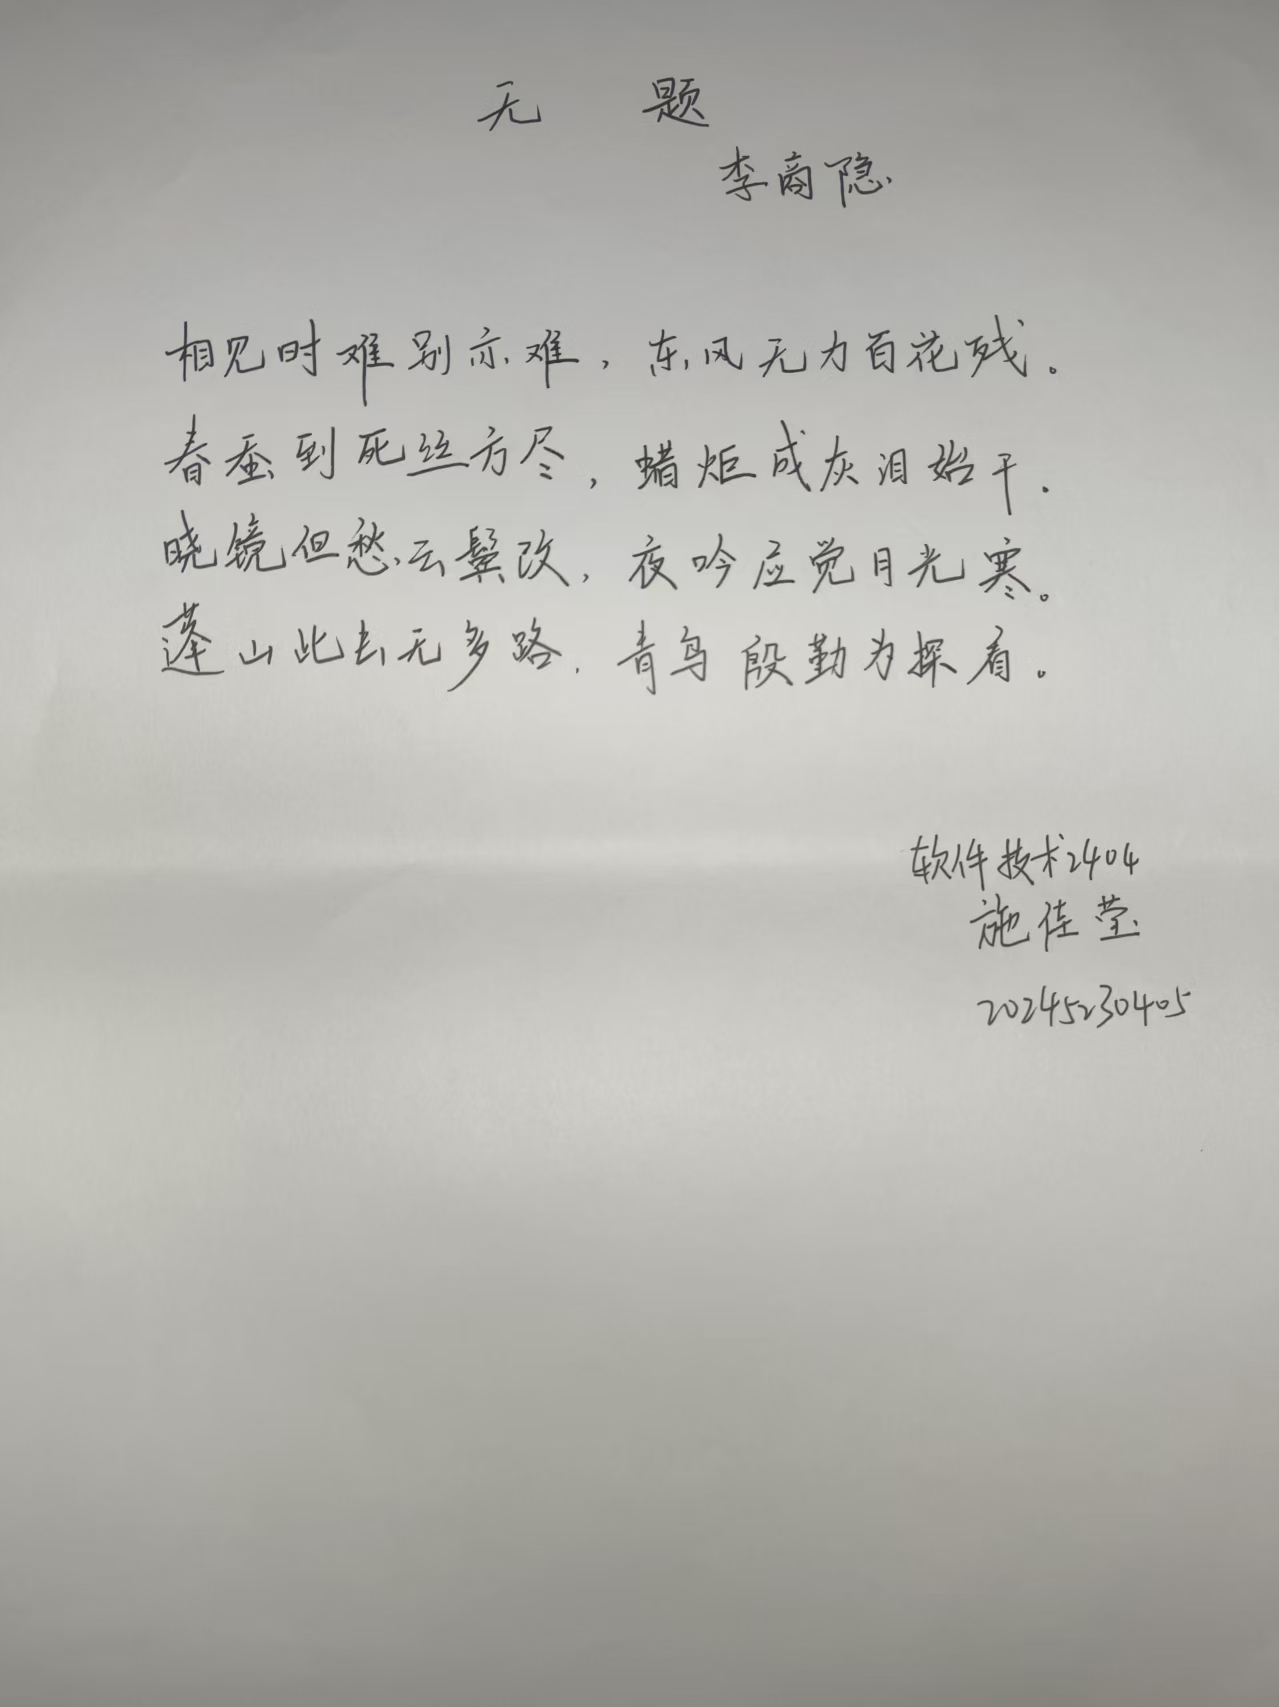 无 题
李商隐
相见时难别亦难，东风无力百花残。
春蚕到死丝方尽，蜡炬成灰泪始干.
晓镜但愁云鬓改，夜吟应觉月光寒。
蓬山此去无多路，青鸟殷勤为探看。
软件技术2404
施佳莹
20245230405